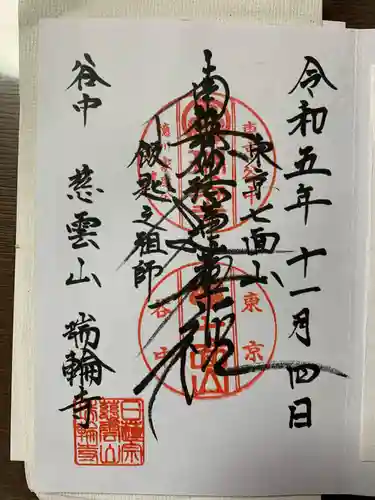 令和五年十一月四日
東京七面山
南無妙法蓮華経
飯匙之祖師
谷中 慈雲山 瑞輪寺
東京
谷中
日蓮宗
慈雲山
瑞輪寺